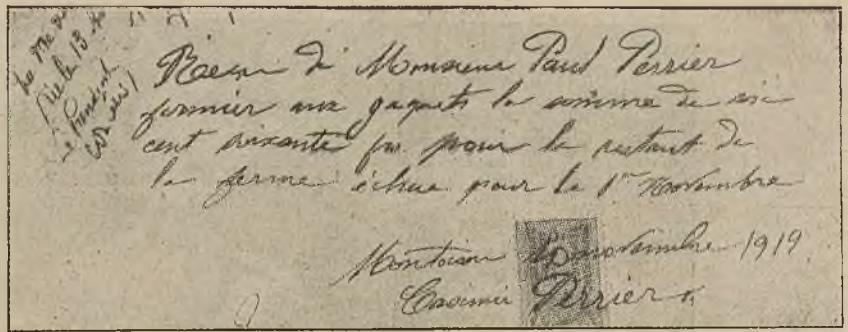 Le 13
le Président
Reçu de Monsieur Paul Perrier
fermier aux gaquets la somme de six
cent soixante frs pour le restant de
la ferme échue pour le 1er Novembre
novembre 1919
Casimir Perrier